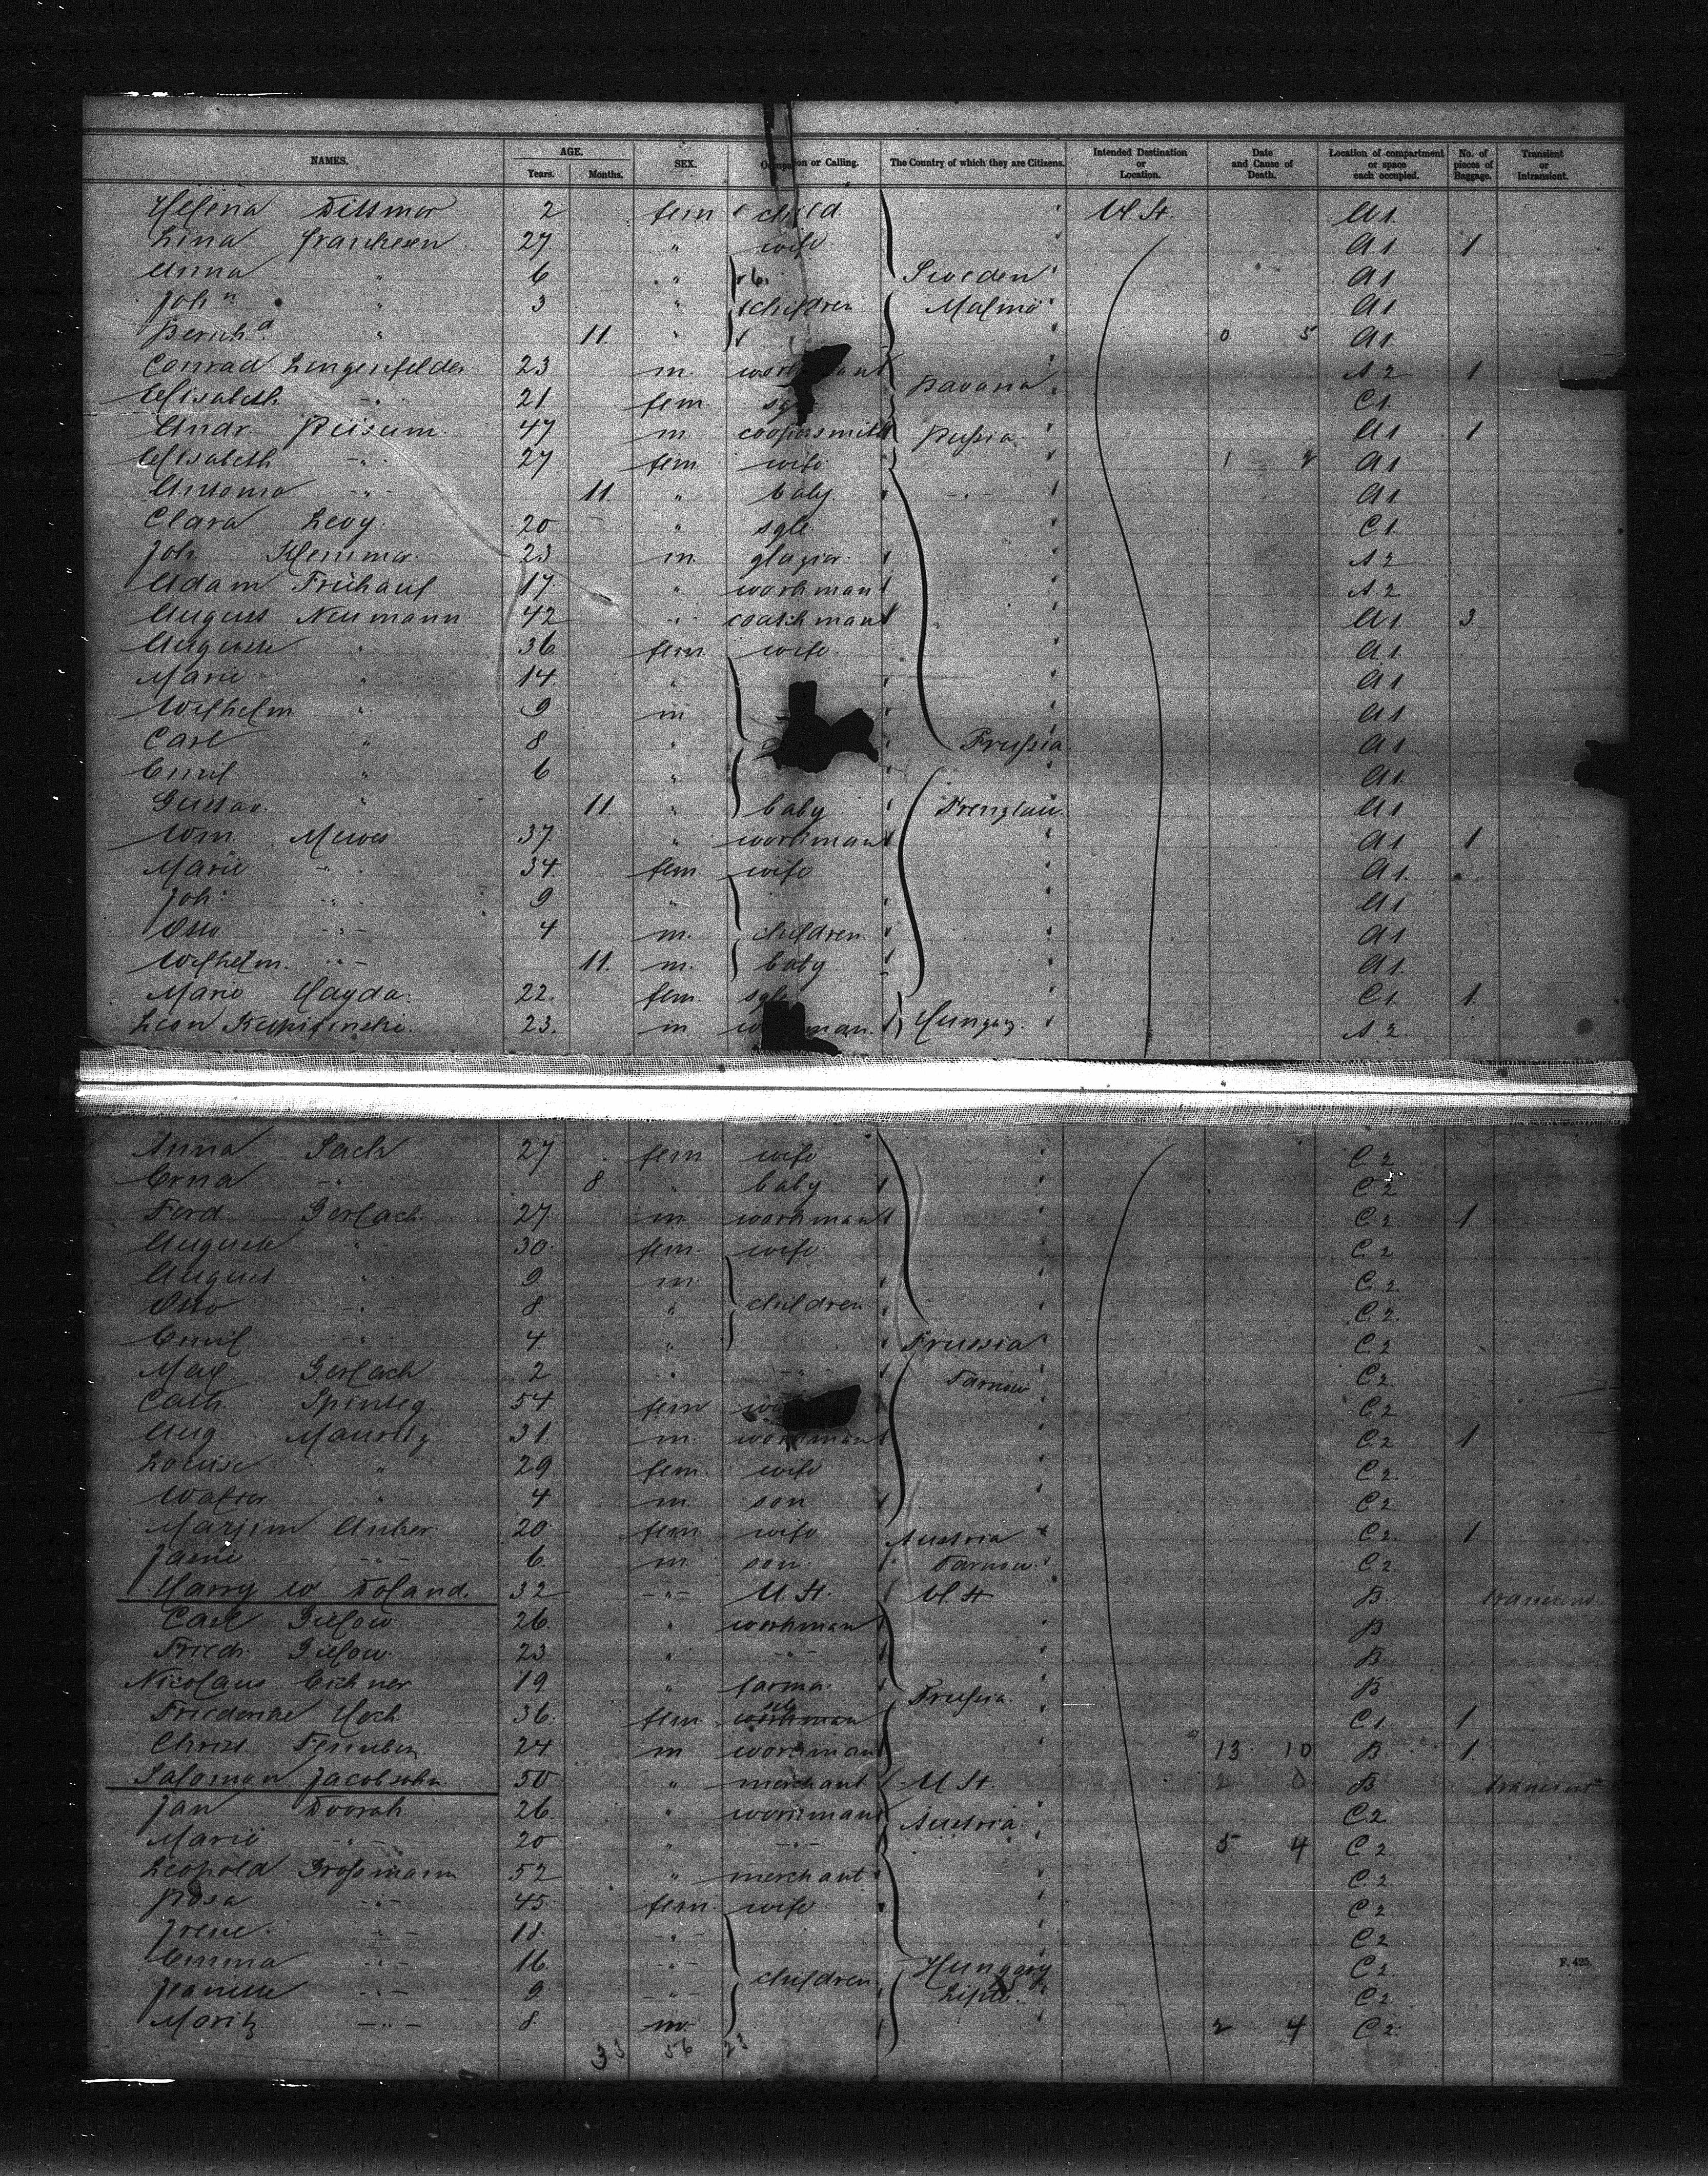 NAMES. AGE. Years. Months. SEX. Occupation or Calling. The Country of which they are Citizens. Intended Destination or Location. Date and Cause of Death. Location of compartment or space each occupied. No. of pieces of Baggage. Transient or Intransient.
Helena Dittmar 2 fem child U St. A1.
Lina Franckesen 27 " wife A1 1
Anna " 6 " Sweden A1
Joh n " 3 " children Malmö A1
Bernh d " 11. " 0 5 A1
Conrad Lingenfelder 23 m. A2 1
Elisabeth -"- 21 fem. Bavaria C1.
Andr. 47 m. coopersmith Russia A1 1
Elisabeth -"- 27 fem. wife 1 A1
Antonia -"- 11. " baby. -"- A1
Clara Levy. 20 " sgle C1.
Joh Klemmer 23 m. glazier A2
Adam Frühauf 17. " workman A.2
August Neumann 42 " coatchman A1 3
Auguste " 36 fem. wife. A1.
Marie " 14. " A1
Wilhelm " 9 m A1
Carl " 8 " Prussia A1
Emil " 6 " A1.
Gustav. " 11. " baby Prenzlau. A1
Wm. Mewes 37. " workman A1 1
Marie -"- 34. fem. wife A1.
Joh: -"- 9 " A1
Otto -"- 4 m. children A1
Wilhelm. -"- 11. m. baby A1.
Marie Hayda. 22. fem. sgle C1. 1.
Leon 23. m man. Hungary. A.2.
Anna Sach 27 fem wife C2
Erna -"- 8 " baby C2
Ferd Gerlach. 27 m workman C.2. 1.
Auguste " 30. fem. wife. C.2
August " 9 m. C.2
Otto -"- 8 " children C2.
Emil " 4. " Prussia C2
Max Gerlach 2 -"- Tarnow C2.
Cath. 54 fem C2
Aug. 31. m. workman C.2 1
Louise " 29 fem. wife C2.
Walter " 4 m. son C2
Marjim Anker 20 fem wife Austria C2. 1
-"- 6. m. son Tarnow. C2
Harry W Doland. 32 -"- U. St. U St B. transient.
Carl Gielow 26. " workman B
Friedr Gielow. 23 " -"- B.
Nicolaus Eichner 19 " farmer. Prussia. B
Friederike Hoch. 36. fem. sgle workman C1. 1
Christ. 24 m workman 13 10 B. 1.
Salomon Jacobsohn 50 " merchant U St. 2 0 B transient
Jan Dvorak 26. " workman Austria. C.2
Marie -"- 20 " -"- 5 4 C2
Leopold Großmann 52 " merchant C.2
Rosa -"- 45 fem. wife C2
Irene. -"- 18. -"- C2
Emma -"- 16. -"- Hungary C2.
Jeanette -"- 9 -"- children C2.
Moritz -"- 8 m. 2 4 C2.
33 56 23
F. 425.